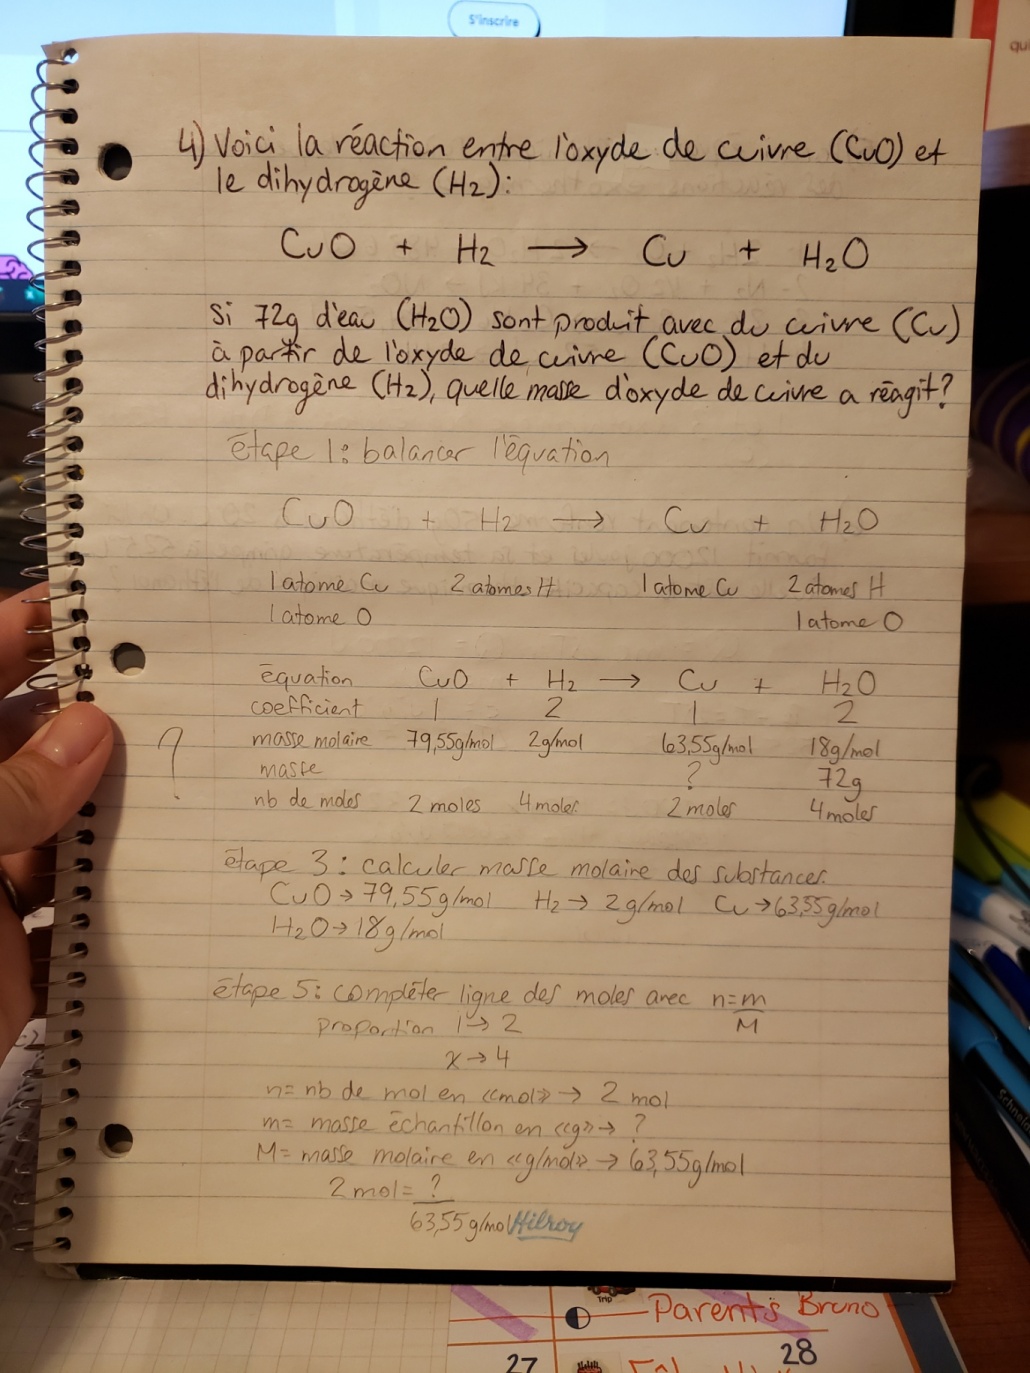 S'inscrire
qui
4) Voici la réaction entre l'oxyde de cuivre (CuO) et
le dihydrogène (H2):
CuO + H2 → Cu + H2O
Si 72g d'eau (H2O) sont produit avec du cuivre (Cu)
à partir de l'oxyde de cuivre (CuO) et du
dihydrogène (H2), quelle masse d'oxyde de cuivre a réagit?
étape 1: balancer l'équation
CuO + H2 → Cu + H2O
1 atome Cu 2 atomes H 1 atome Cu 2 atomes H
1 atome O 1 atome O
équation CuO + H2 → Cu + H2O
coefficient 1 2 1 2
? masse molaire 79,55g/mol 2g/mol 63,55g/mol 18g/mol
masse ? 72g
nb de moles 2 moles 4 moles 2 moles 4 moles
étape 3: calculer masse molaire des substances.
CuO → 79,55g/mol H2 → 2g/mol Cu → 63,55g/mol
H2O → 18g/mol
étape 5: compléter ligne des moles avec n=m/M
proportion 1 → 2
x → 4
n= nb de mol en «mol» → 2 mol
m= masse échantillon en «g» → ?
M= masse molaire en «g/mol» → 63,55g/mol
2 mol = ?
63,55g/mol Hilroy
Trip
Parents Bruno
27 28